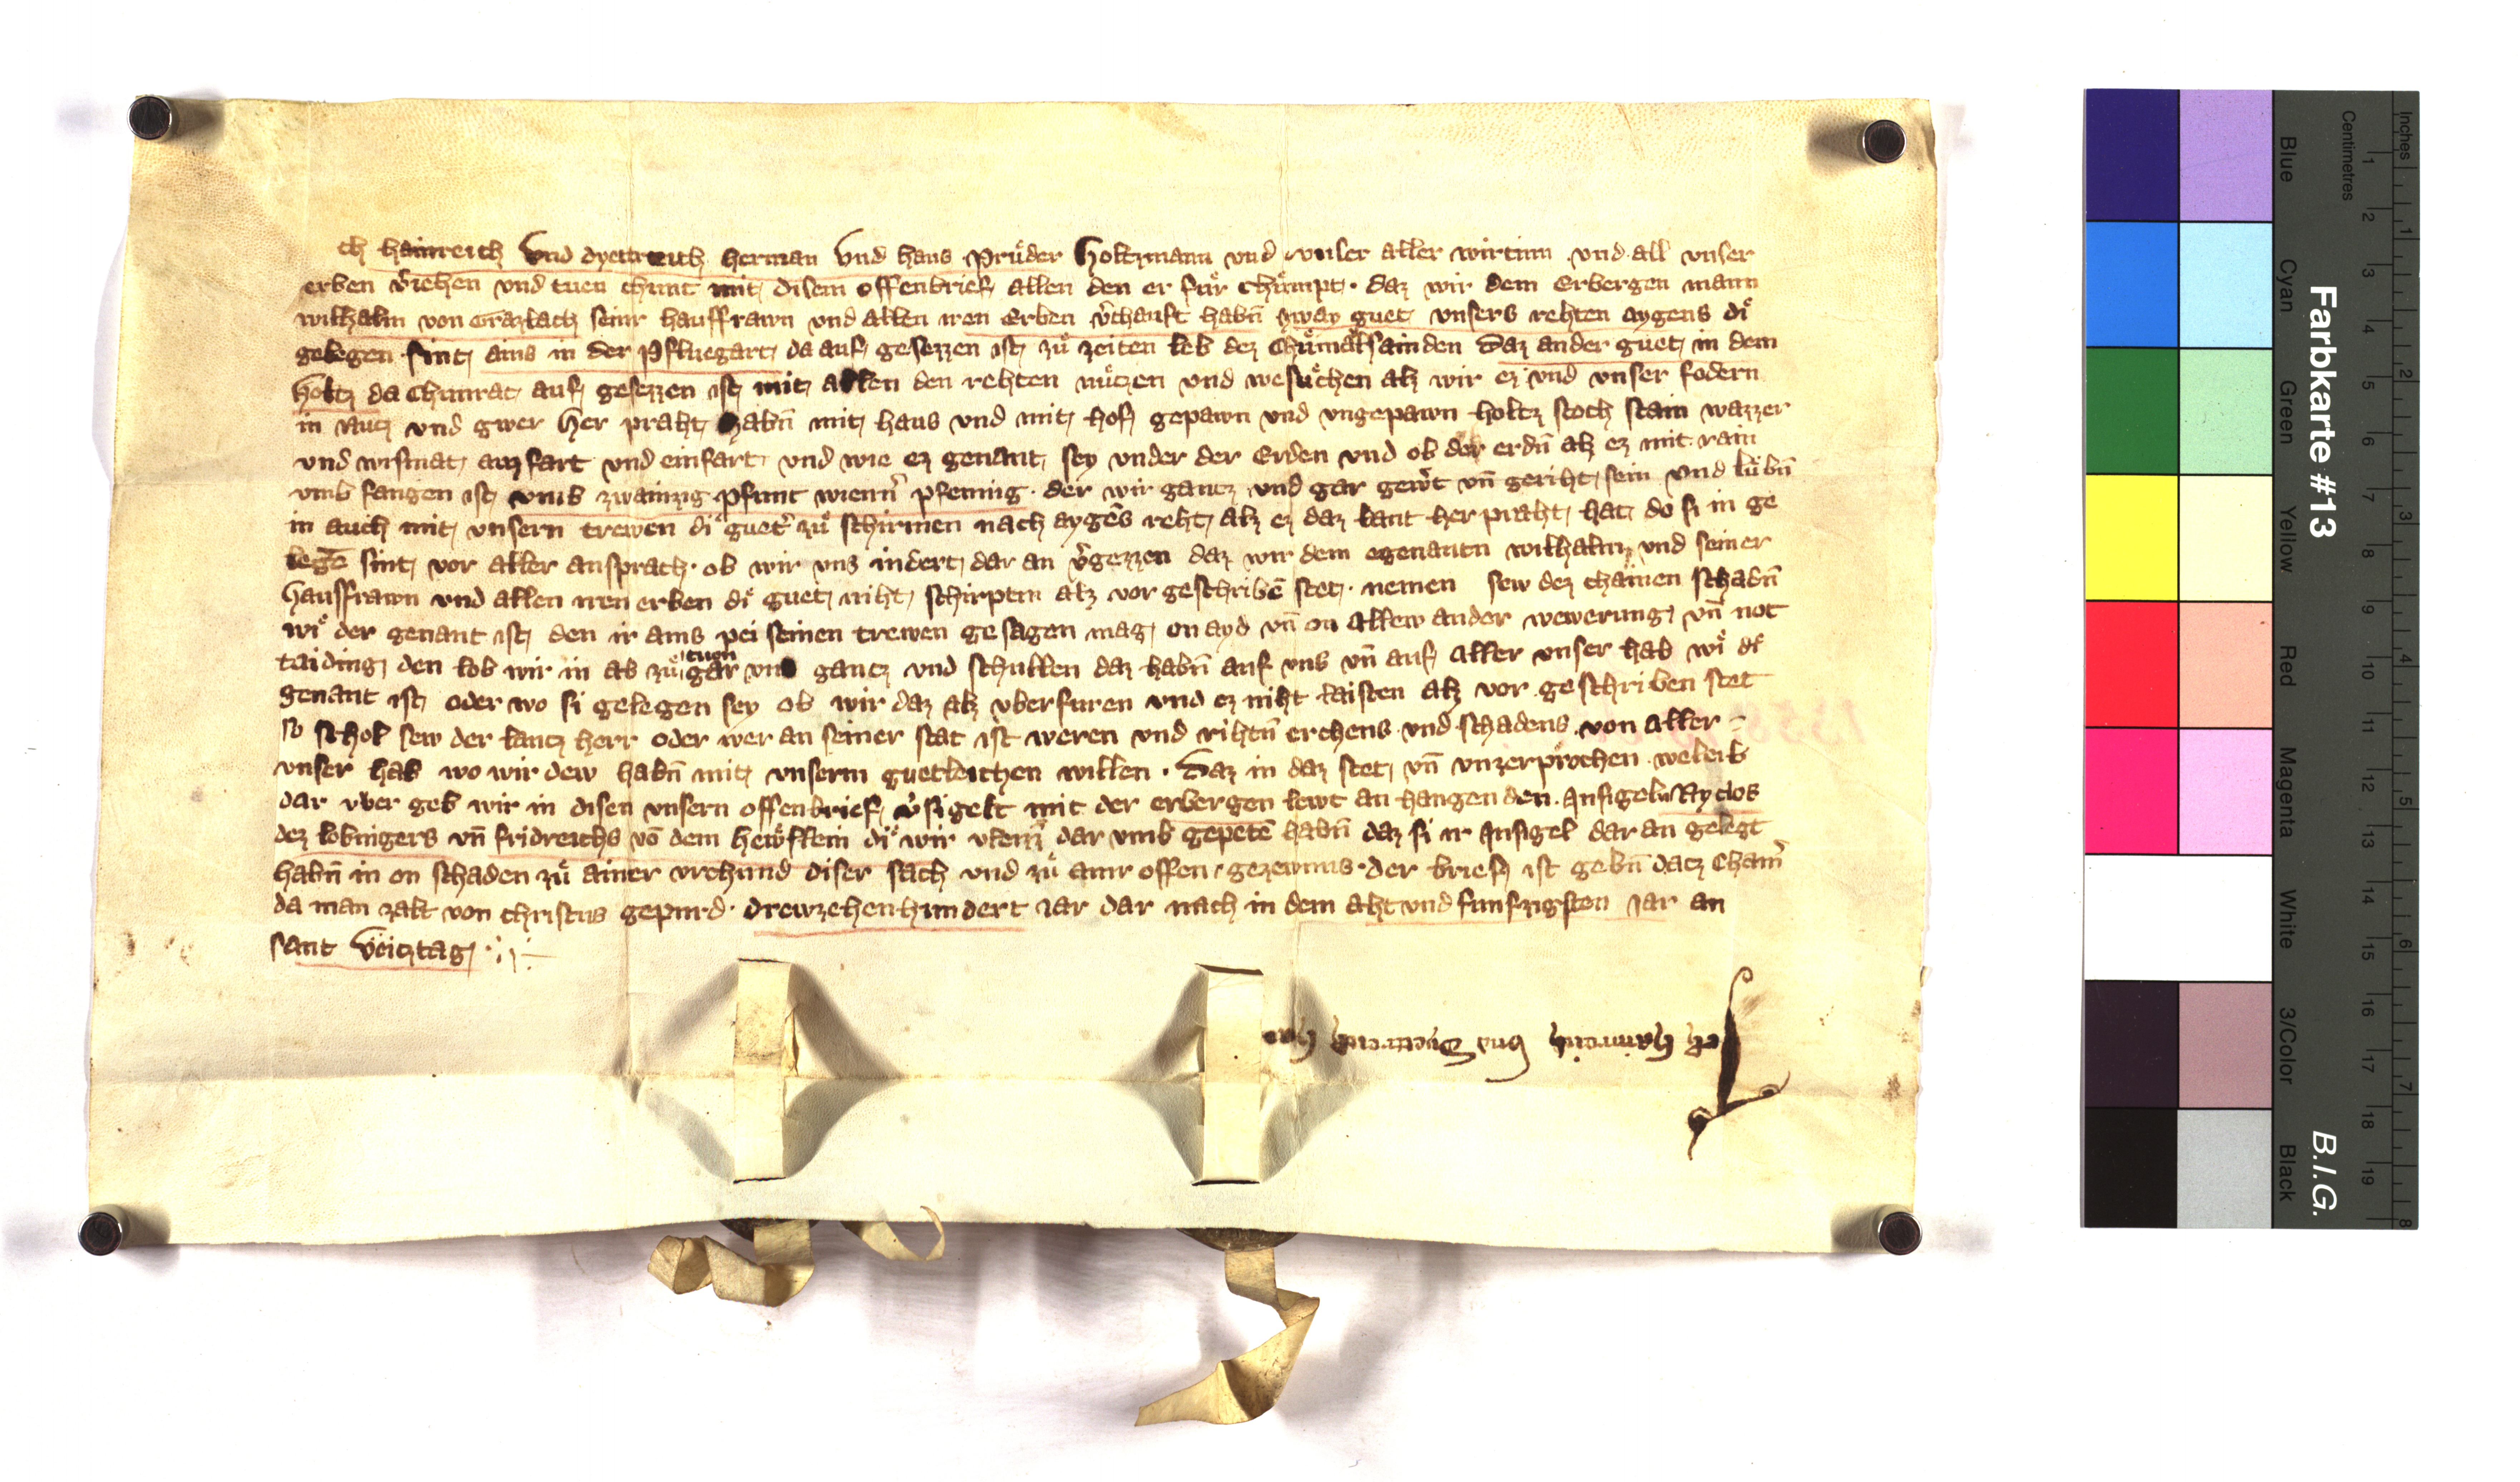 ch hainreich Vnd dyettreich herman Vnd hans Prue̊der Holtzmann vnd vnser aller wirtinn vnd all vnser
erben v̓iehen vnd tuen chunt mit disem offenbrief allen den er fue̊r chue̊mpt · daz wir dem Erbergen mann
wilhalm von Grazlach seinr hausfrawn vnd allen iren Erben v̓chauft habn̄ zway guet vnsers rehten aygens di
gelegen sint ains in der Pfluegart da auf gesezzen ist zue̊ zeiten leb dez Chue̊malsainden Daz ander guet in dem
holtz da Chunrat auf gesezzen ist mit allen den rehten nue̊tzen vnd wesue̊chen alz wir ez vnd vnser fodern
in nutz vnd gwer her praht habn̄ mit haus vnd mit hof gepawn vnd vngepawn holtz stoch stain wazzer
vnd wismat auzfart vnd einfart vnd wie ez genant sey vnder der Erden vnd ob der erdn̄ alz ez mit rain
vmb fangen ist vmb zwainzig pfunt wienn̓ pfennig · der wir gantz vnd gar gew̓t vn̄ geriht sein vnd lue̊bn̄
in auch mit vnsern trewen di guet̓ zue̊ schirmen nach aygēs reht alz ez daz lant her praht hat do si in ge
legē sint vor aller ansprach · ob wir vns indert dar an v̓gezzen daz wir dem egenantn wilhalm vnd seiner
hausfrawn vnd allen iren erben di guet niht schirptin alz vor geschribē stet · nemen sew dez chainen schadn̄
wi der genant ist den ir ains pei seinen trewen gesagen mag on ayd vn̄ on allew ander wewerung vn̄ not
taiding den lob wir in ab zue̊ tuon gar vnd gantz vnd schullen daz habn̄ auf vns vn̄ auf aller vnser hab wi di
genant ist oder wo si gelegen sey ob wir daz alz vberfuren vnd ez niht laisten alz vor geschriben stet
so schol sew der lantz herr oder wer an seiner stat ist weren vnd rihtn̄ erchens vnd schadens von aller -
vnser hab wo wir dew habn̄ mit vnserm guetleichen willen · Daz in daz stet vn̄ vnzerprochen weleib
dar vber geb wir in disen vnsern offenbrief v̓sigelt mit der erbergen lewt an hangenden Insigeln Nyclos
dez lobnigers vn̄ fridreichs vō dem hewsslein di wir dar vmb gepetē habn̄ daz si ir Insigel dar an gelegt
habn̄ in on schaden zue̊ ainer vrchund diser sach vnd zue̊ ainr offen gezewnus · der brief ist gebn̄ datz Cham̓
da man zalt von christus gepurd · drewzehenhundert iar dar nach in dem aht vnd funfzigsten iar an
sant Veitztag ·
Ich hainreich Vnd Dyettreich her
Farbkarte #13 B.I.G.
Inches 1 2 3 4 5 6 7 8
Centimetres 1 2 3 4 5 6 7 8 9 10 11 12 13 14 15 16 17 18 19
Blue Cyan Green Yellow Red Magenta White 3/Color Black